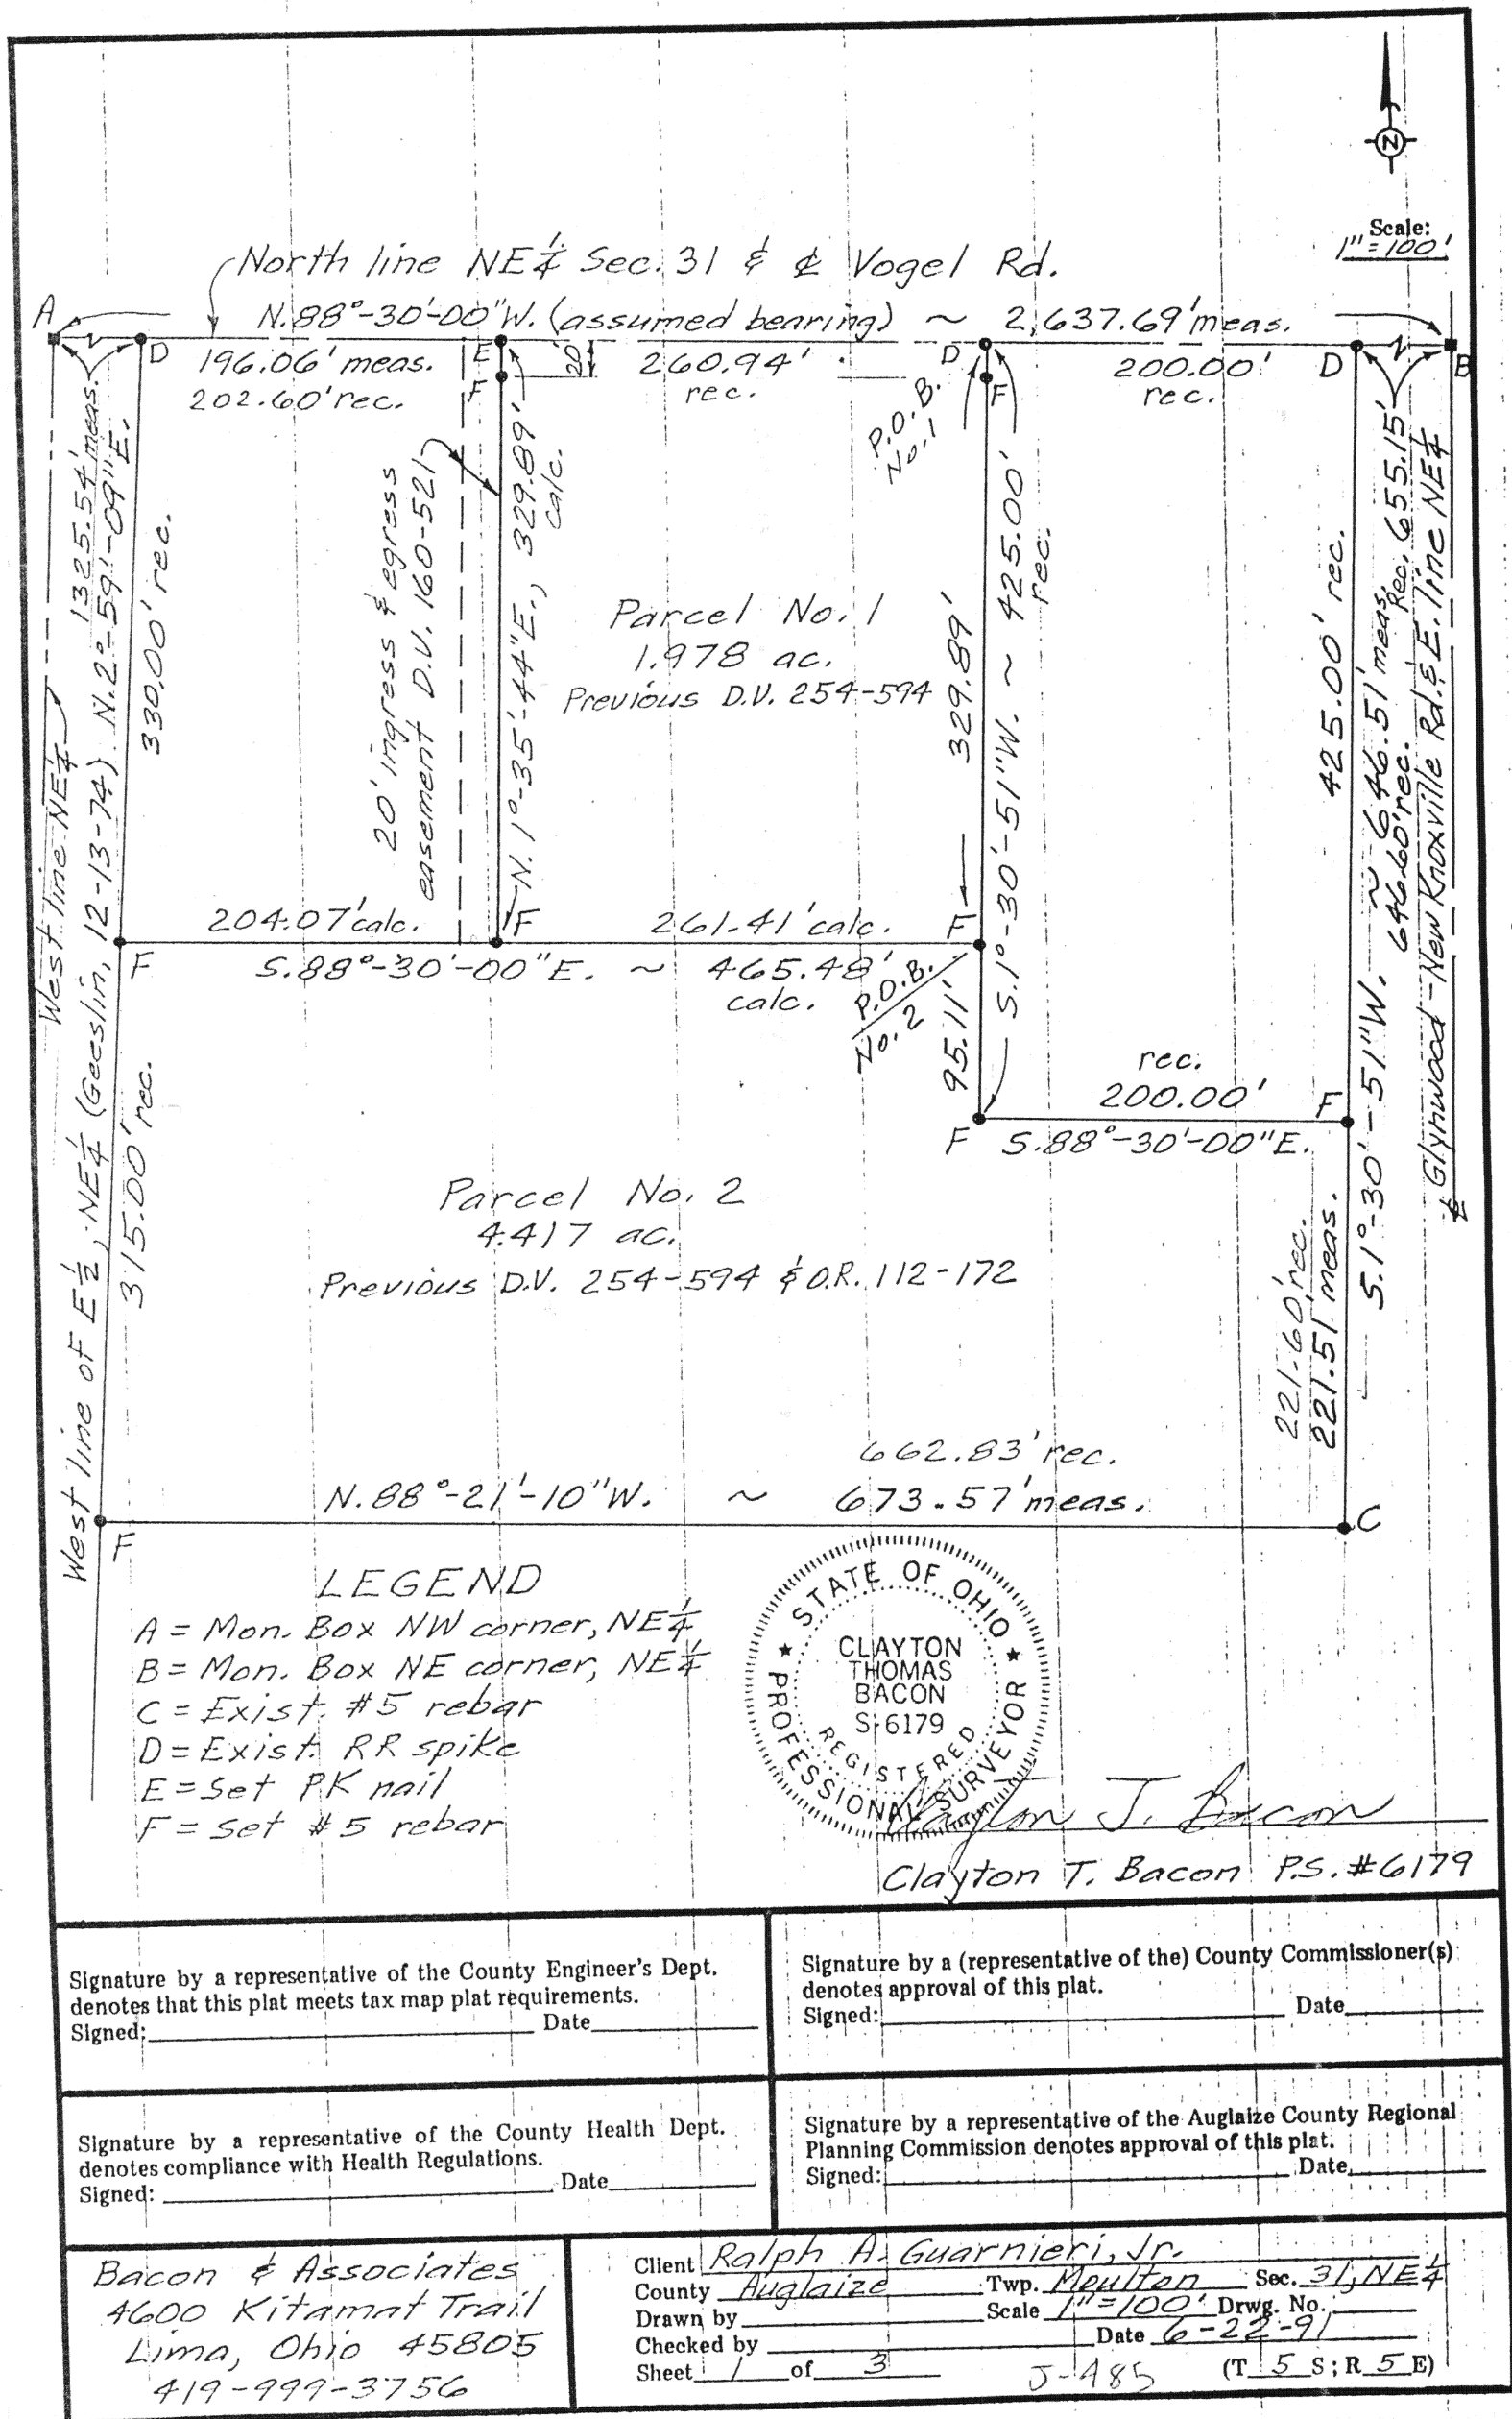 N
Scale:
1"=100'
North line NE 1/4 Sec. 31 & ℄ Vogel Rd.
N.88°-30'-00"W. (assumed bearing) ~ 2,637.69' meas.
A
D
196.06' meas.
202.60' rec.
E
F
20'
260.94'
rec.
D
F
P.O.B.
No. 1
200.00'
rec.
D
B
1325.54' meas.
N.2°-59'-09"E.
330.00' rec.
20' ingress & egress
easement D.V. 160-521
N.1°-35'-44"E., 329.89'
calc.
Parcel No. 1
1.978 ac.
Previous D.V. 254-594
329.89'
S.1°-30'-51"W. ~ 425.00'
rec.
425.00' rec.
S.1°-30'-51"W. ~ 646.51' meas.
646.60' rec.
Rec. 655.15'
℄ Glynwood-New Knoxville Rd. & E. line NE 1/4
West line NE 1/4
West line of E 1/2, NE 1/4 (Geeslin, 12-13-74)
204.07' calc.
F
261.41' calc.
F
F
S.88°-30'-00"E. ~ 465.48'
calc.
P.O.B.
No. 2
95.11'
315.00' rec.
rec.
200.00'
F
F
S.88°-30'-00"E.
Parcel No. 2
4.417 ac.
Previous D.V. 254-594 & O.R. 112-172
221.60' rec.
221.51 meas.
662.83' rec.
N.88°-21'-10"W. ~ 673.57' meas.
F
C
LEGEND
A = Mon. Box NW corner, NE 1/4
B = Mon. Box NE corner, NE 1/4
C = Exist. #5 rebar
D = Exist. RR spike
E = Set PK nail
F = Set #5 rebar
STATE OF OHIO
CLAYTON
THOMAS
BACON
S-6179
REGISTERED
PROFESSIONAL SURVEYOR
Clayton T. Bacon
Clayton T. Bacon P.S. #6179
Signature by a representative of the County Engineer's Dept.
denotes that this plat meets tax map plat requirements.
Signed: Date
Signature by a (representative of the) County Commissioner(s)
denotes approval of this plat.
Signed: Date
Signature by a representative of the County Health Dept.
denotes compliance with Health Regulations.
Signed: Date
Signature by a representative of the Auglaize County Regional
Planning Commission denotes approval of this plat.
Signed: Date
Bacon & Associates
4600 Kitamat Trail
Lima, Ohio 45805
419-999-3756
Client Ralph A. Guarnieri, Jr.
County Auglaize Twp. Moulton Sec. 31, NE 1/4
Drawn by Scale 1"=100' Drwg. No.
Checked by Date 6-22-91
Sheet 1 of 3 J-485 (T 5 S; R 5 E)